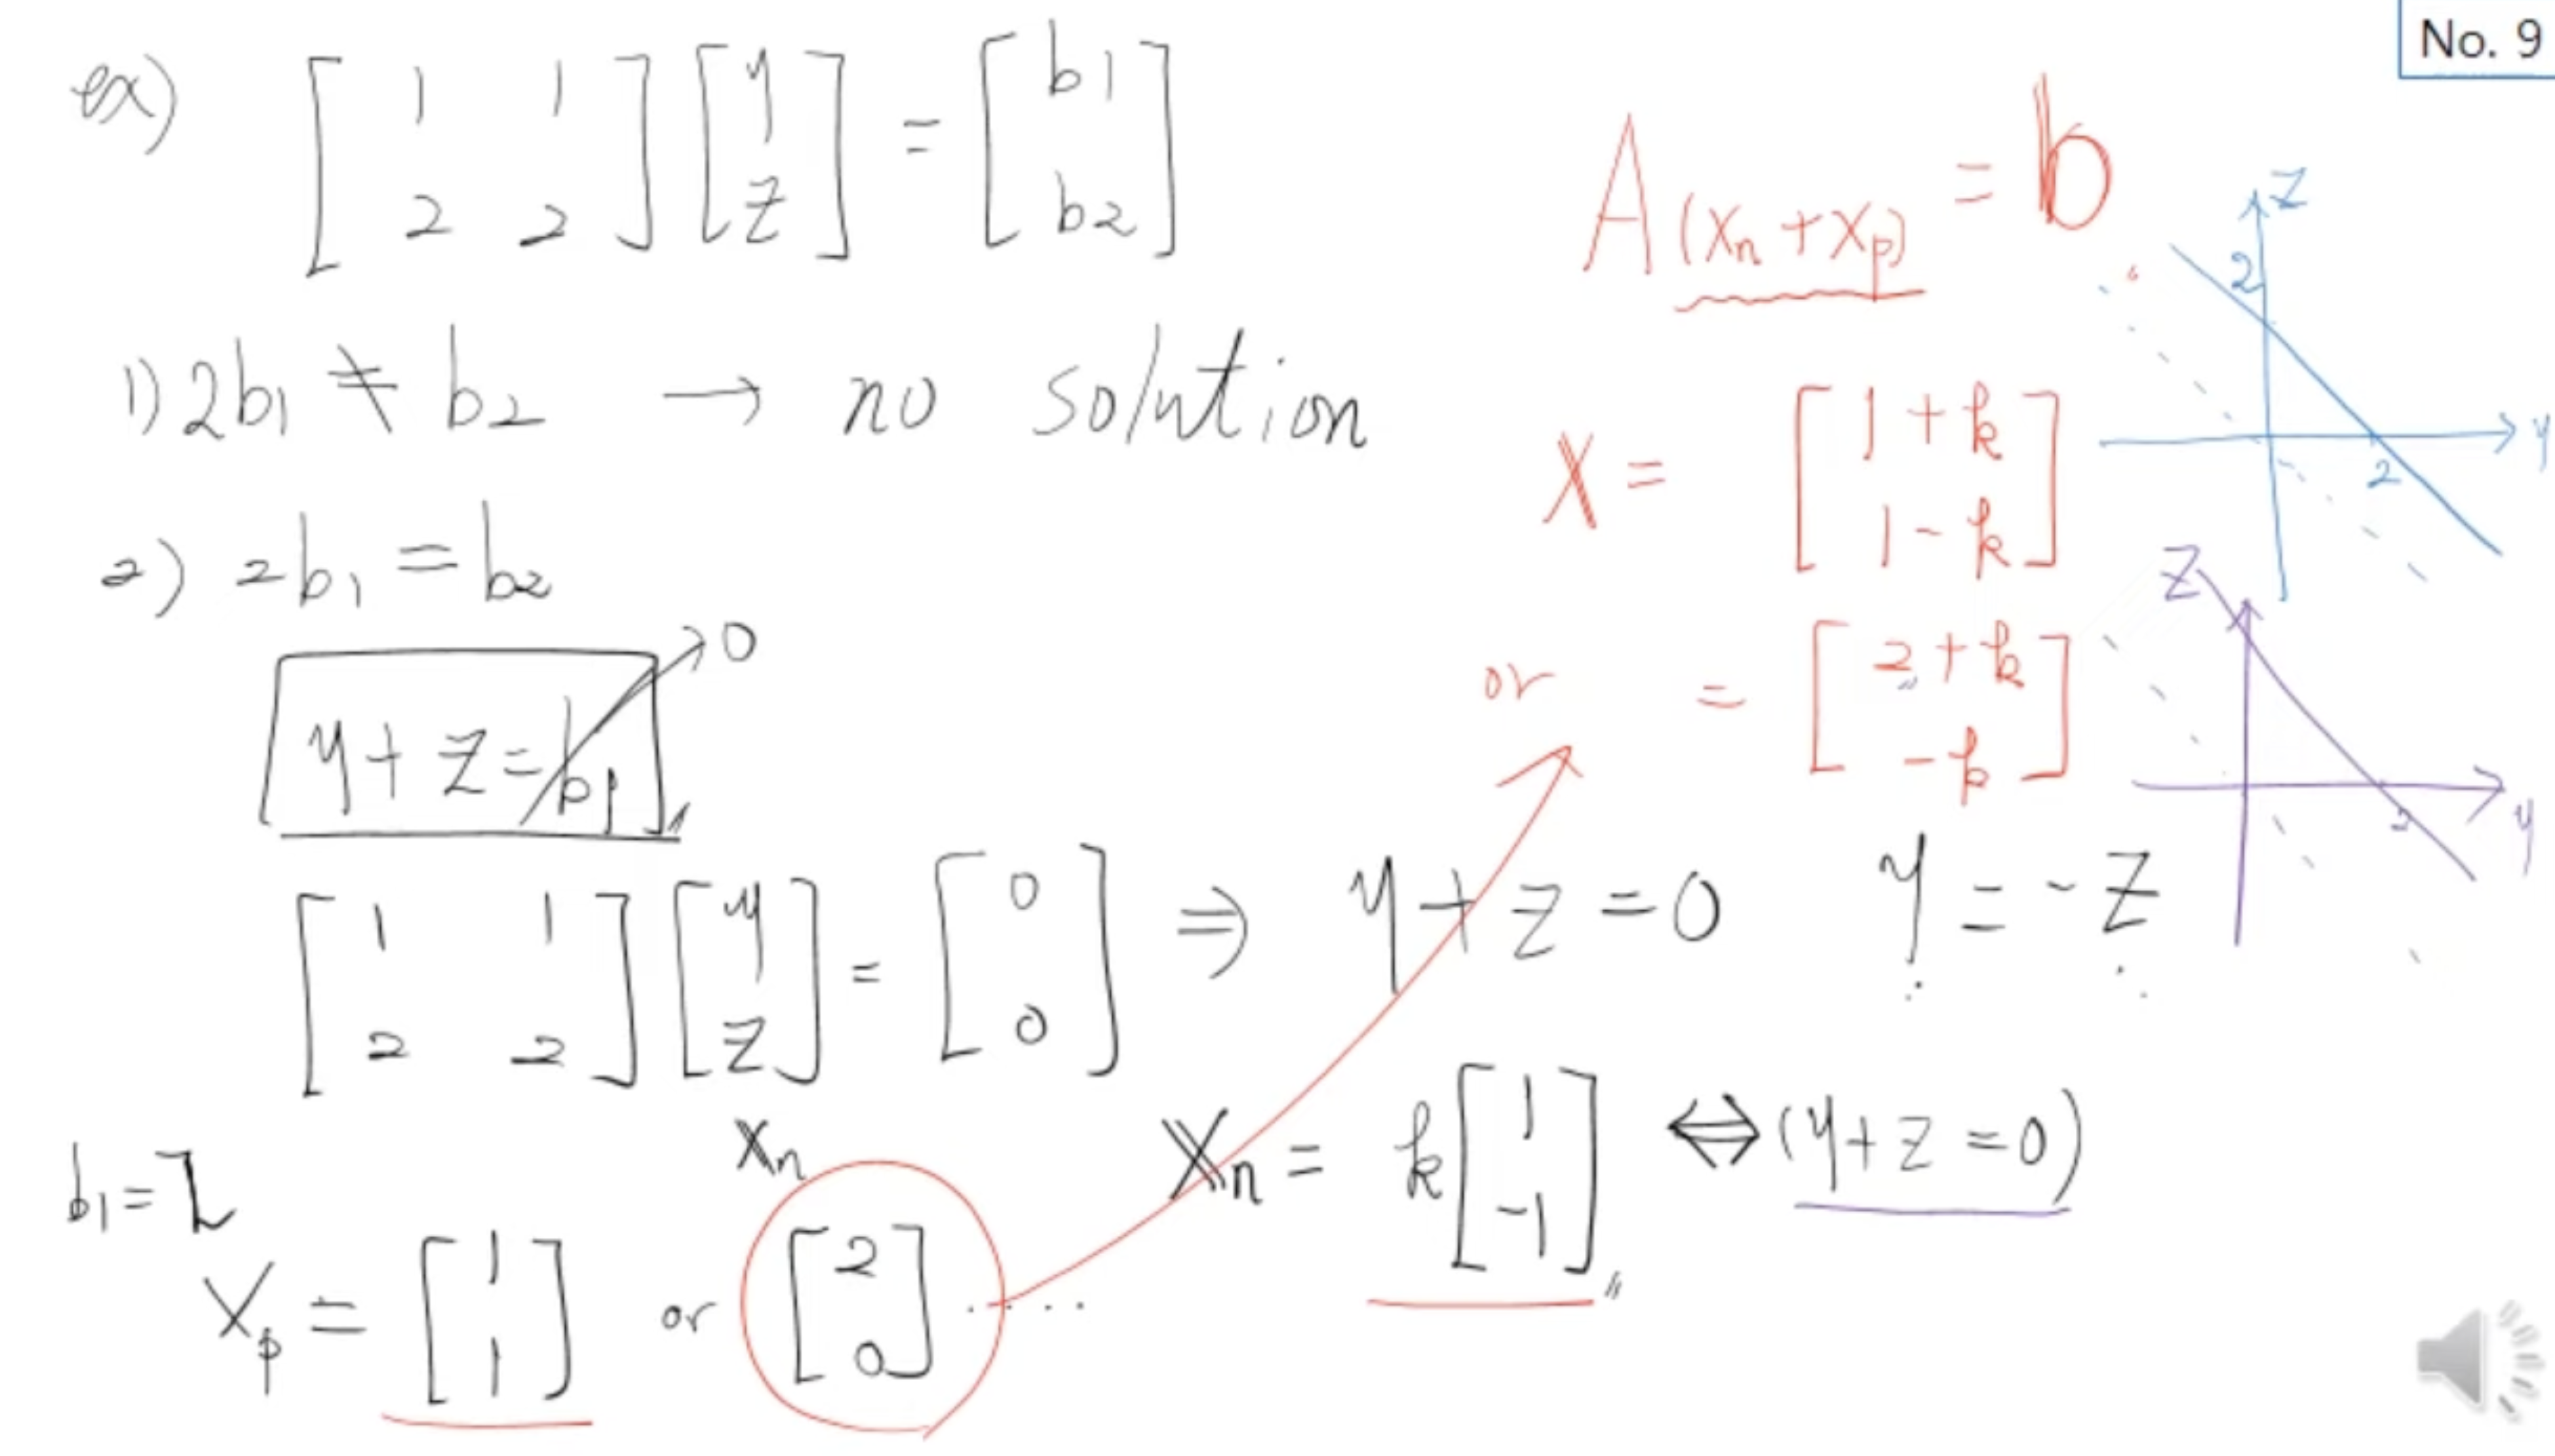 No. 9
ex) [1 1; 2 2] [y; z] = [b1; b2]
1) 2b1 ≠ b2 → no solution
2) 2b1 = b2
y + z = b1 → 0
[1 1; 2 2] [y; z] = [0; 0] ⇒ y + z = 0 y = -z
xn
xn = k[1; -1] ⇔ (y + z = 0)
b1 = 2
xp = [1; 1] or [2; 0] .....
A(xn + xp) = b
x = [1 + k; 1 - k]
or = [2 + k; -k]
z
2
y
2
z
y
2